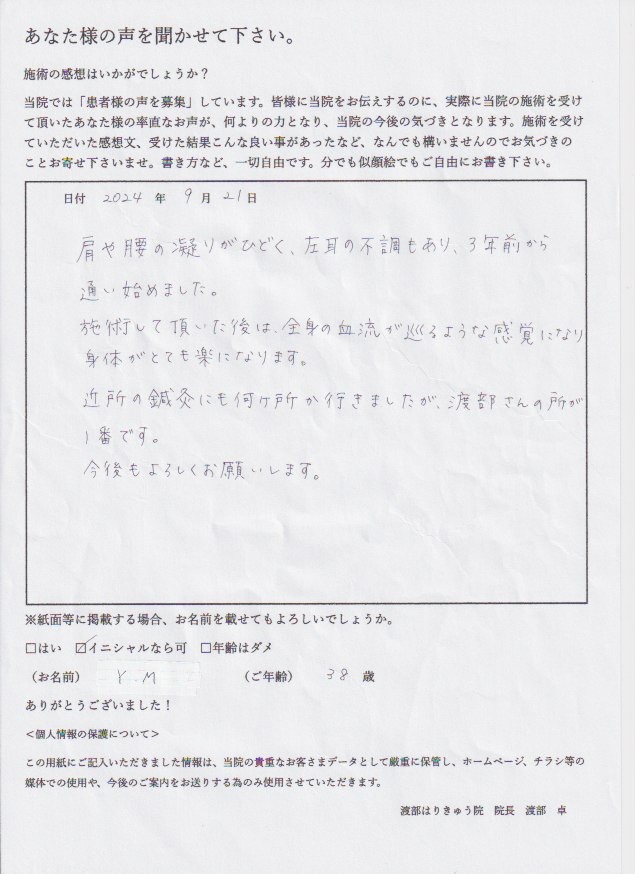 あなた様の声を聞かせて下さい。
施術の感想はいかがでしょうか？
当院では「患者様の声を募集」しています。皆様に当院をお伝えするのに、実際に当院の施術を受け
て頂いたあなた様の率直なお声が、何よりの力となり、当院の今後の気づきとなります。施術を受け
ていただいた感想文、受けた結果こんな良い事があったなど、なんでも構いませんのでお気づきの
ことお寄せ下さいませ。書き方など、一切自由です。分でも似顔絵でもご自由にお書き下さい。
日付 2024 年 9 月 21 日
肩や腰の凝りがひどく、左耳の不調もあり、3年前から
通い始めました。
施術して頂いた後は、全身の血流が巡るような感覚になり
身体がとても楽になります。
近所の鍼灸にも何ヶ所か行きましたが、渡部さんの所が
1番です。
今後もよろしくお願いします。
※紙面等に掲載する場合、お名前を載せてもよろしいでしょうか。
□はい ☑イニシャルなら可 □年齢はダメ
（お名前） Y.M （ご年齢） 38 歳
ありがとうございました！
＜個人情報の保護について＞
この用紙にご記入いただきました情報は、当院の貴重なお客さまデータとして厳重に保管し、ホームページ、チラシ等の
媒体での使用や、今後のご案内をお送りする為のみ使用させていただきます。
渡部はりきゅう院 院長 渡部 卓